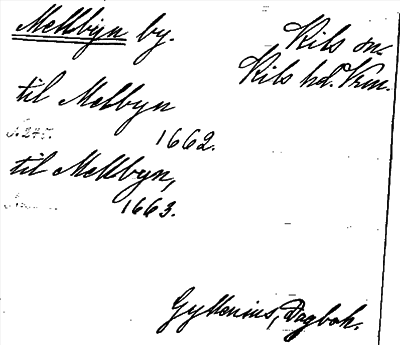 Mellbyn by.
Kils sn.
Kils hd. Vrm.
til Melbyn
1662.
s. 275.
til Mellbyn,
1663.
Gyllenius, Dagbok.